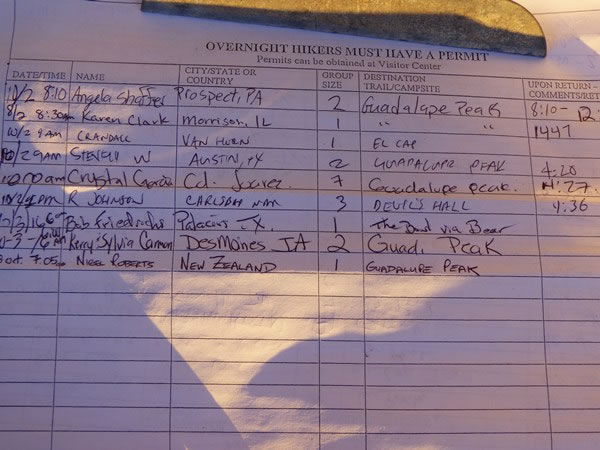 OVERNIGHT HIKERS MUST HAVE A PERMIT
Permits can be obtained at Visitor Center
DATE/TIME NAME CITY/STATE OR COUNTRY GROUP SIZE DESTINATION TRAIL/CAMPSITE UPON RETURN – COMMENTS/RET
10/2 8:10 Angela Shaffer Prospect, PA 2 Guadalupe Peak 8:10 - 12
8:30am Karen Clark Morrison, IL 1 " " 1447
10/2 9AM CRANDALL VAN HORN 1 EL CAP
9AM STEVEN W AUSTIN, TX 2 GUADALUPE PEAK 4:20
Crystal Garcia Cd. Juarez 7 Guadalupe peak. 4:27
R JOHNSON CARLSBAD NM 3 DEVIL'S HALL 4:36
Bob Friedrichs Palacios TX. 1 The Bowl via Bear
Kerry & Sylvia DesMoines IA 2 Guad. Peak
oct. 7.05 NIGEL ROBERTS NEW ZEALAND 1 GUADALUPE PEAK